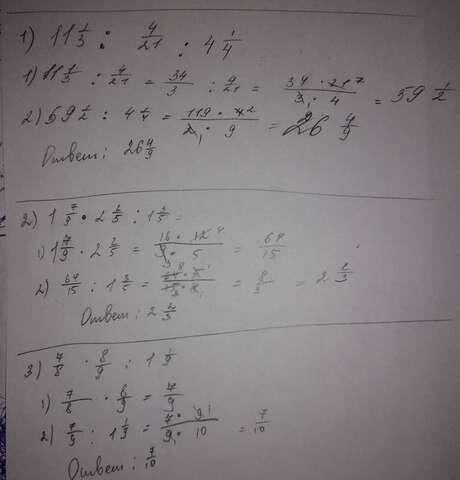 1) 11 1/3 : 4/21 : 4 1/4
1) 11 1/3 : 4/21 = 34/3 : 4/21 = 34 · 21 7 / 3 1 · 4 = 59 1/2
2) 59 1/2 : 4 1/4 = 119 · 4 2 / 2 1 · 9 = 26 4/9
Ответ: 26 4/9
2) 1 7/9 · 2 2/5 : 1 3/5 =
1) 1 7/9 · 2 2/5 = 16 · 12 4 / 9 3 · 5 = 64/15
2) 64/15 : 1 3/5 = = 8/3 = 2 2/3
Ответ: 2 2/3
3) 7/8 · 8/9 : 1 1/9
1) 7/8 · 8/9 = 7/9
2) 7/9 : 1 1/9 = 7 · 9 1 / 9 1 · 10 = 7/10
Ответ: 7/10